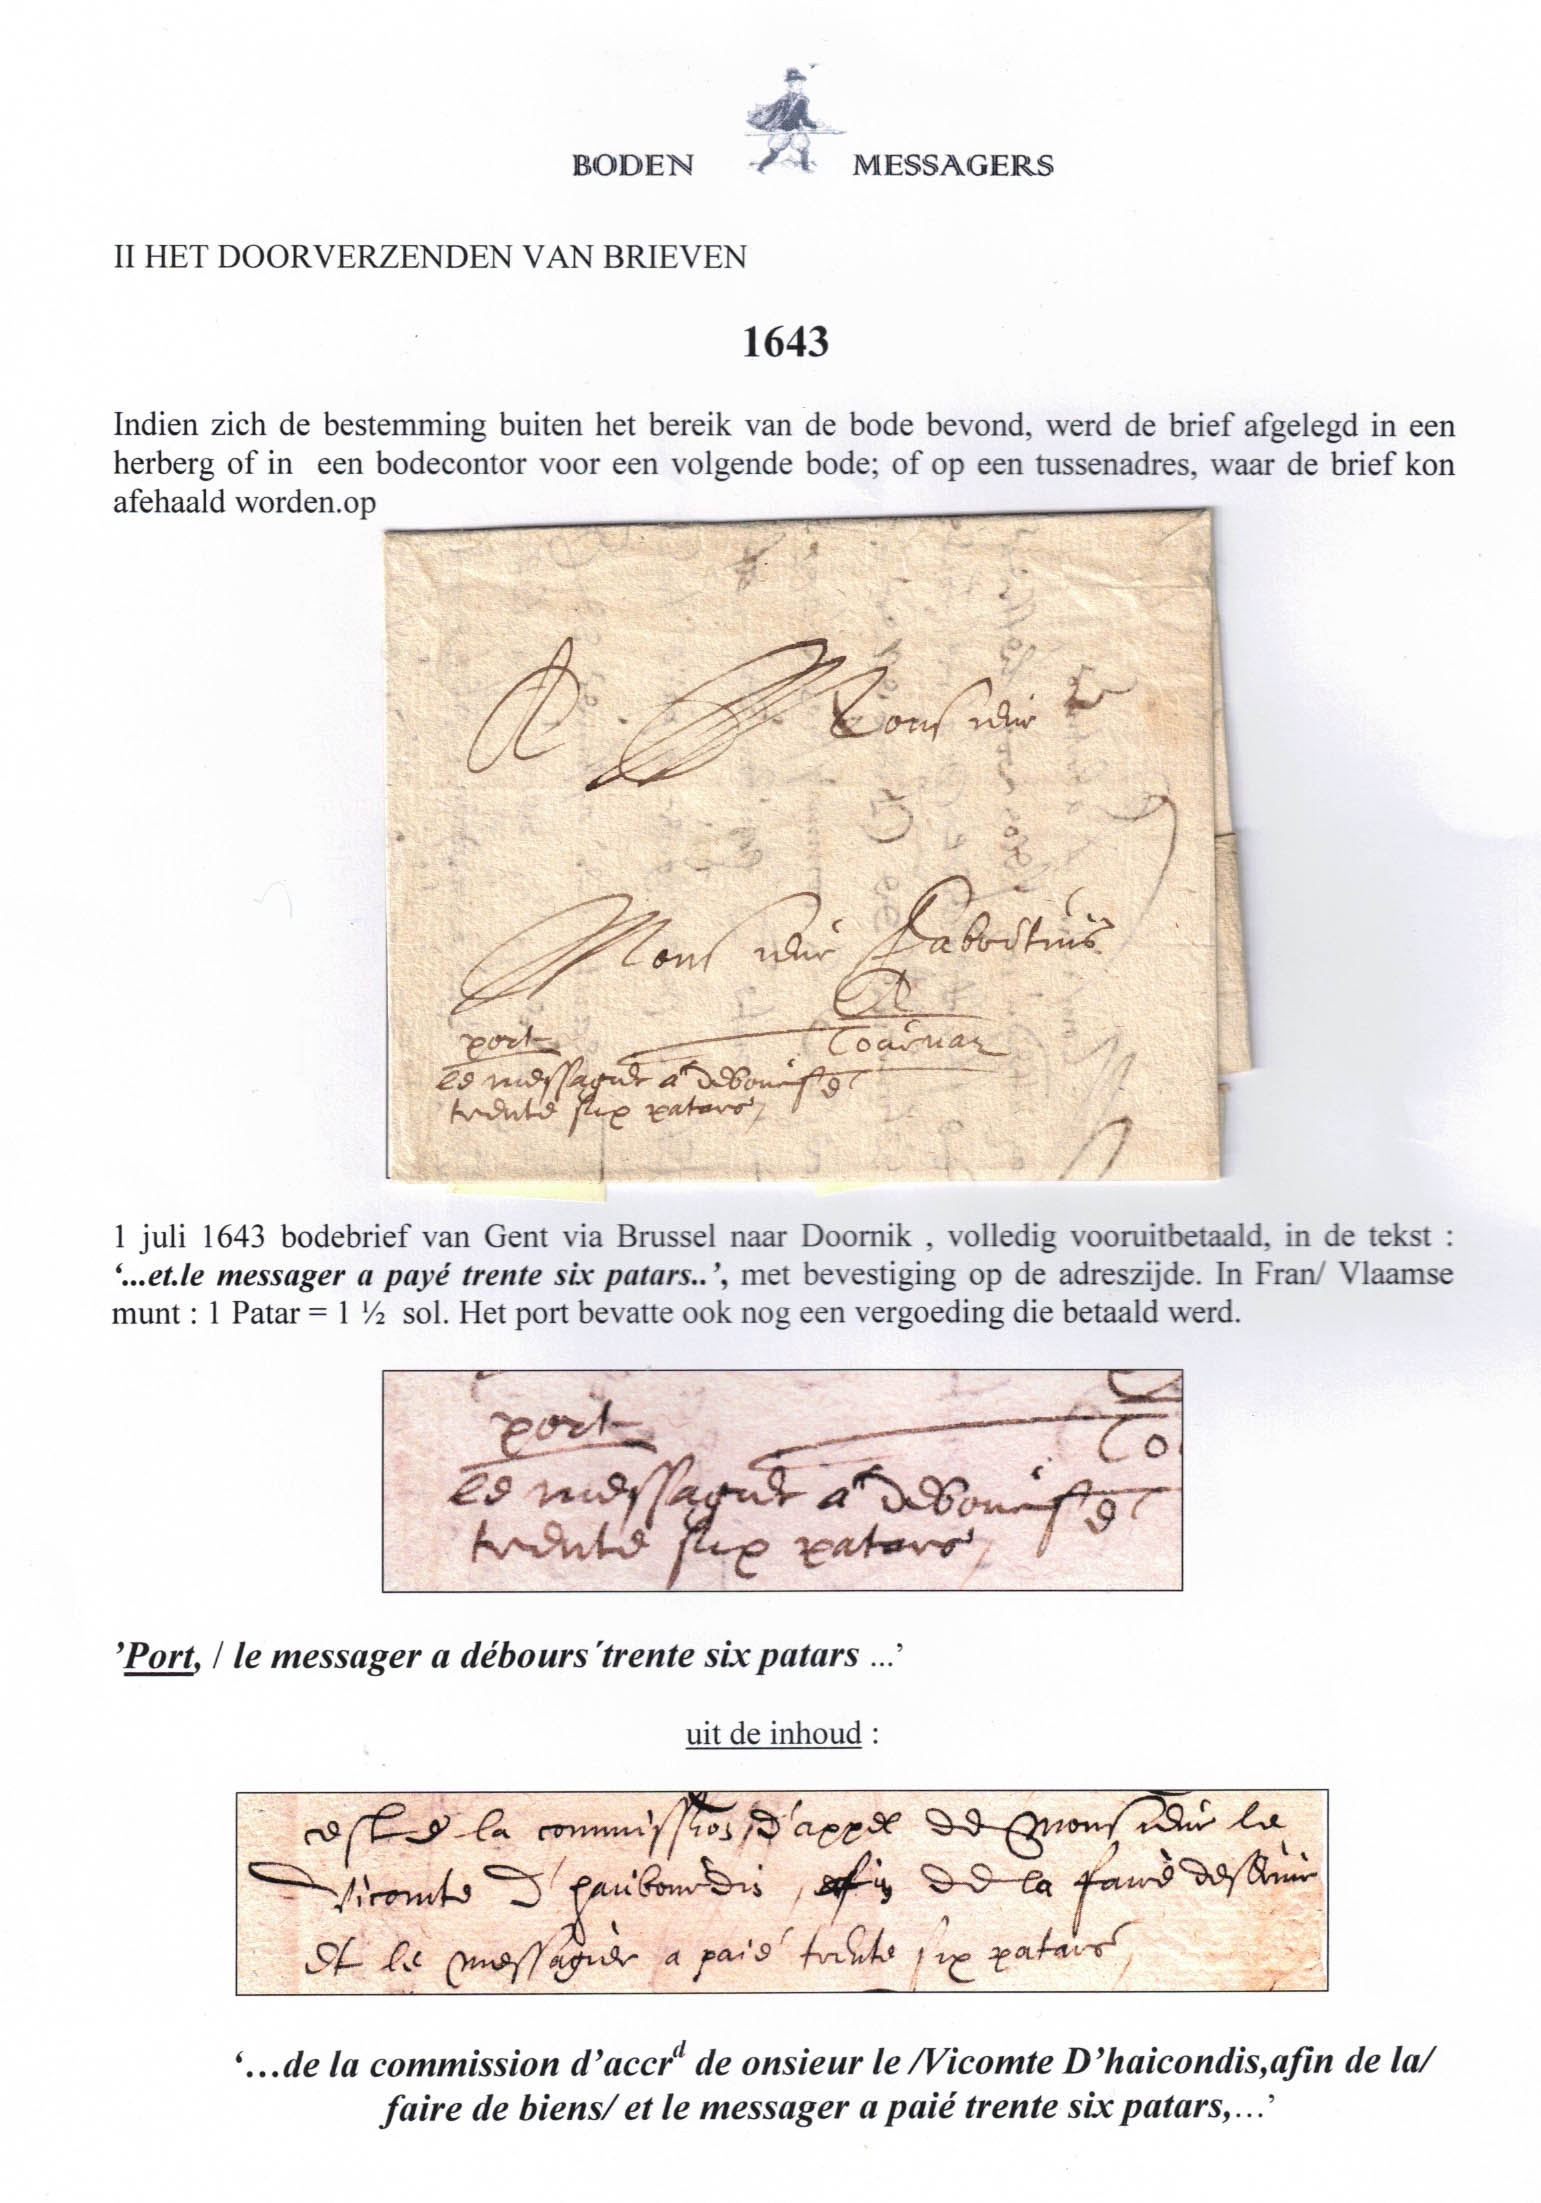 BODEN MESSAGERS
II HET DOORVERZENDEN VAN BRIEVEN
1643
Indien zich de bestemming buiten het bereik van de bode bevond, werd de brief afgelegd in een
herberg of in een bodecontor voor een volgende bode; of op een tussenadres, waar de brief kon
afehaald worden.op
A Monsieur
Monsieur
A
Tournay
port
le messagier a debourse
trente six patars
1 juli 1643 bodebrief van Gent via Brussel naar Doornik , volledig vooruitbetaald, in de tekst :
‘...et.le messager a payé trente six patars..’, met bevestiging op de adreszijde. In Fran/ Vlaamse
munt : 1 Patar = 1 ½ sol. Het port bevatte ook nog een vergoeding die betaald werd.
port
le messagier a debourse
trente six patars
To
’Port, / le messager a débours´trente six patars ...’
uit de inhoud :
la commission d'appel de Monsieur le
Vicomte afin de la faire
et le messagier a paié trente six patars
‘…de la commission d’accrd de onsieur le /Vicomte D’haicondis,afin de la/
faire de biens/ et le messager a paié trente six patars,…’